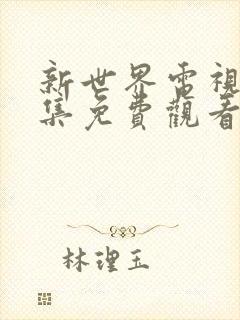 新世界電視
集免費觀看
林理玉